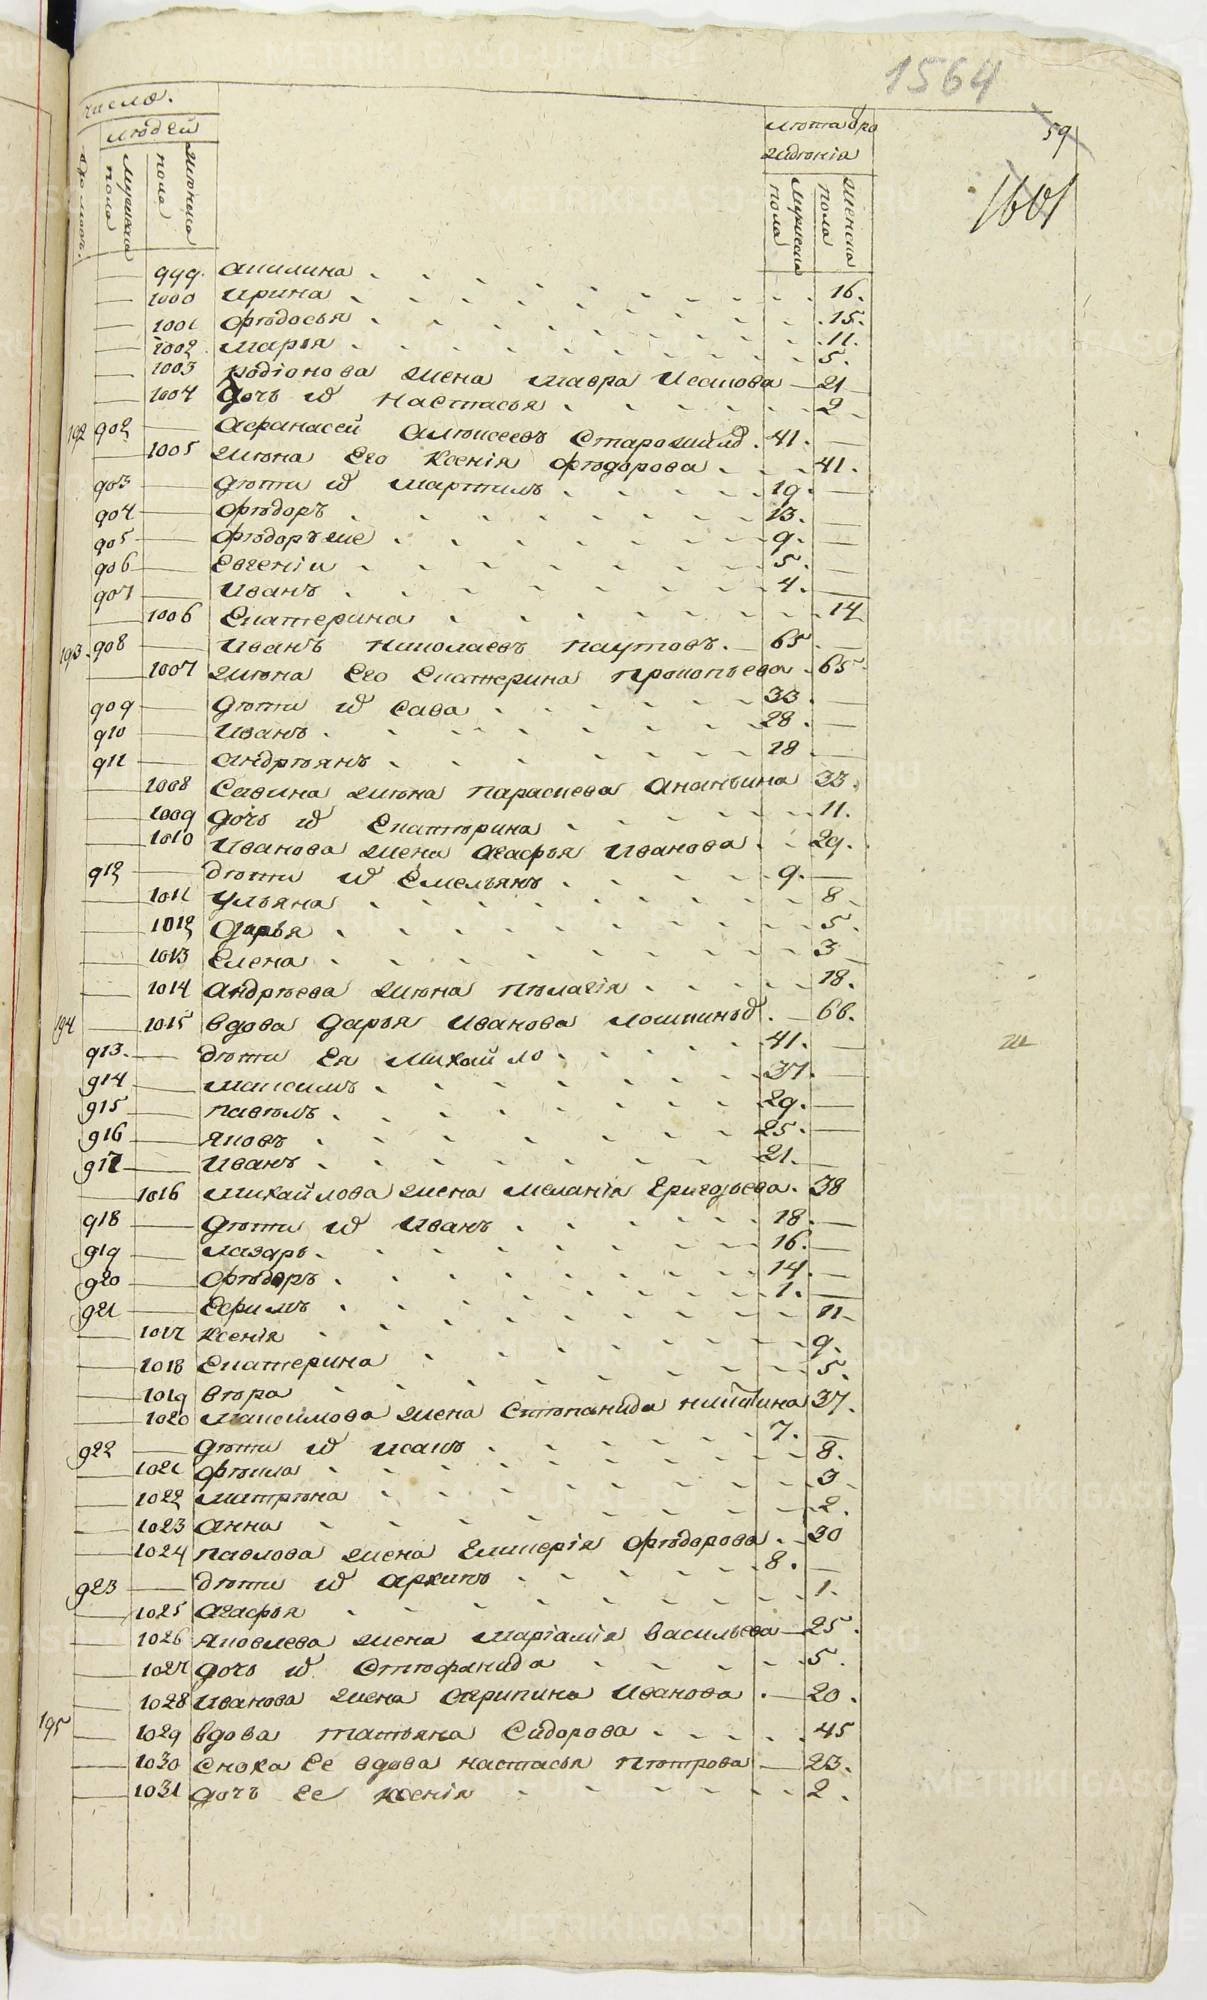 1564
59
1601
число.
людей
лѣта ро
ждѣнія
Дворовъ.
мужеска пола
женска пола
мужеска пола
женска пола
999. Акилина 16.
1000 Ирина 15.
1001 Ѳѣдосья 11.
1002 Марья 5.
1003 Родіонова жена Мавра Исакова 21
1004 Дочь и҃ Настасья 2
192 902 Афанасей Алѣксеевъ Старожил 41.
1005 жѣна Его Ксенія Ѳѣдорова 41.
903 Дѣти и҃ Мартинъ 19.
904 Ѳѣдоръ 13.
905 Ѳѣдоръ же 9.
906 Евгеніи 5.
907 Иванъ 4.
1006 Екатерина 14
193. 908 Иванъ Николаевъ Паутовъ. 65
1007 жѣна Его Екатерина Прокопьева 65
909 Дѣти и҃ Сава 33
910 Иванъ 28
911 Андрѣянъ 18
1008 Савина жѣна Параскева Ананьина 33.
1009 Дочь и҃ Екатѣрина 11.
1010 Иванова жена Агафья Иванова 29.
912 Дѣти и҃ Емельянъ 9.
1011 Ульяна 8
1012 Дарья 5.
1013 Елена 3
1014 Андрѣева жѣна Пѣлагія 18.
194 1015 Вдова Дарья Иванова 66.
913. Дѣти Ея Михайло 41.
914 Максимъ 37.
915 Павѣлъ 29.
916 Яковъ 25.
917 Иванъ 21.
1016 Михайлова жена Меланія Григорьева. 38
918 Дѣти и҃ Иванъ 18.
919 Лазарь 16.
920 Ѳѣдоръ 14.
921 Ефимъ 1.
1017 Ксенія 11
1018 Екатерина 9.
1019 Вѣра 5.
1020 Максимова жена Стѣпанида Никитина 37.
922 Дѣти и҃ Исакъ 7.
1021 Ѳѣкла 8.
1022 Матрѣна 3
1023 Анна 2.
1024 Павлова жена Гликерія Ѳѣдорова 30
923 Дѣти и҃ Архипъ 8.
1025 Агафья 1.
1026 Яковлева жена Маріамія Васильева 25.
1027 Дочь и҃ Стѣфанида 5.
1028 Иванова жена Агрипина Иванова 20.
195 1029 Вдова Татьяна Сидорова 45
1030 Сноха Ее вдова Настасья Пѣтрова 23.
1031 Дочь Ее Ксенія 2.